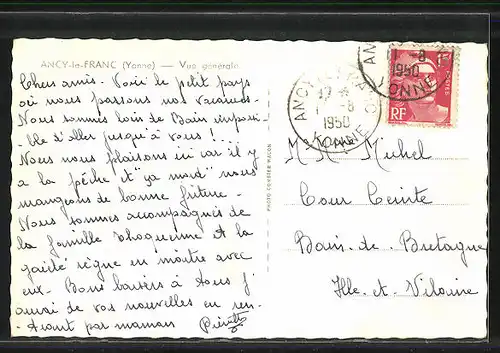 ANCY-le-FRANC (Yonne) — Vue générale
Chers amis. Voici le petit pays
où nous passons nos vacances.
Nous sommes loin de Bain impossi-
ble d'aller jusqu'à vous !...
Nous nous plaisons ici car il y
a la pêche et "ça mord" nous
mangeons de bonne friture.
Nous sommes accompagnés de
la famille et la
gaîté règne en maître avec
eux. Bons baisers à tous j'
aurai de vos nouvelles en ren-
trant par maman
Pierrette
PHOTO COMBIER MACON
ANCY
17 *
1 -8
1950
YONNE
1950
YONNE
POSTES
RF
M. Mme Michel
Cour Ceinte
Bain-de-Bretagne
Ille-et-Vilaine